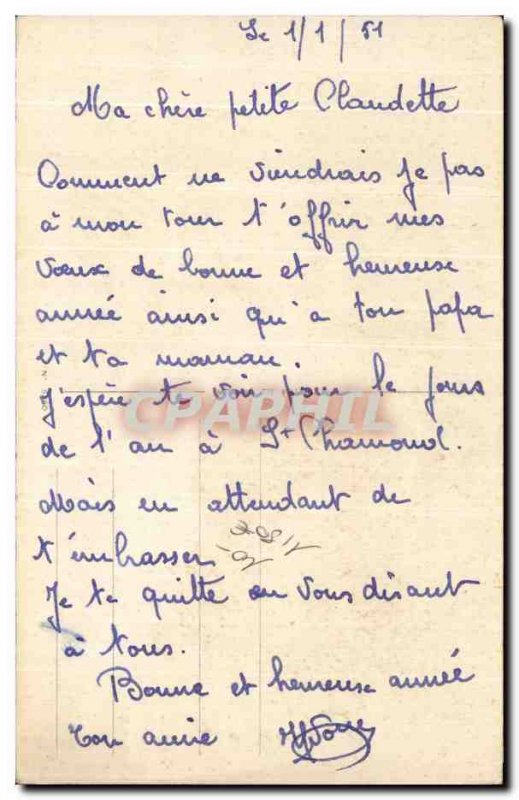 Le 1/1/51
Ma chère petite Claudette
Comment ne viendrais je pas
à mon tour t'offrir mes
voeux de bonne et heureuse
année ainsi qu'a ton papa
et ta maman.
j'espère te voir pour le jour
de l'an à St Chamond.
Mais en attendant de
t'embrasser
Je te quitte en vous disant
à tous.
Bonne et heureuse année
Ton amie
CPAPHIL